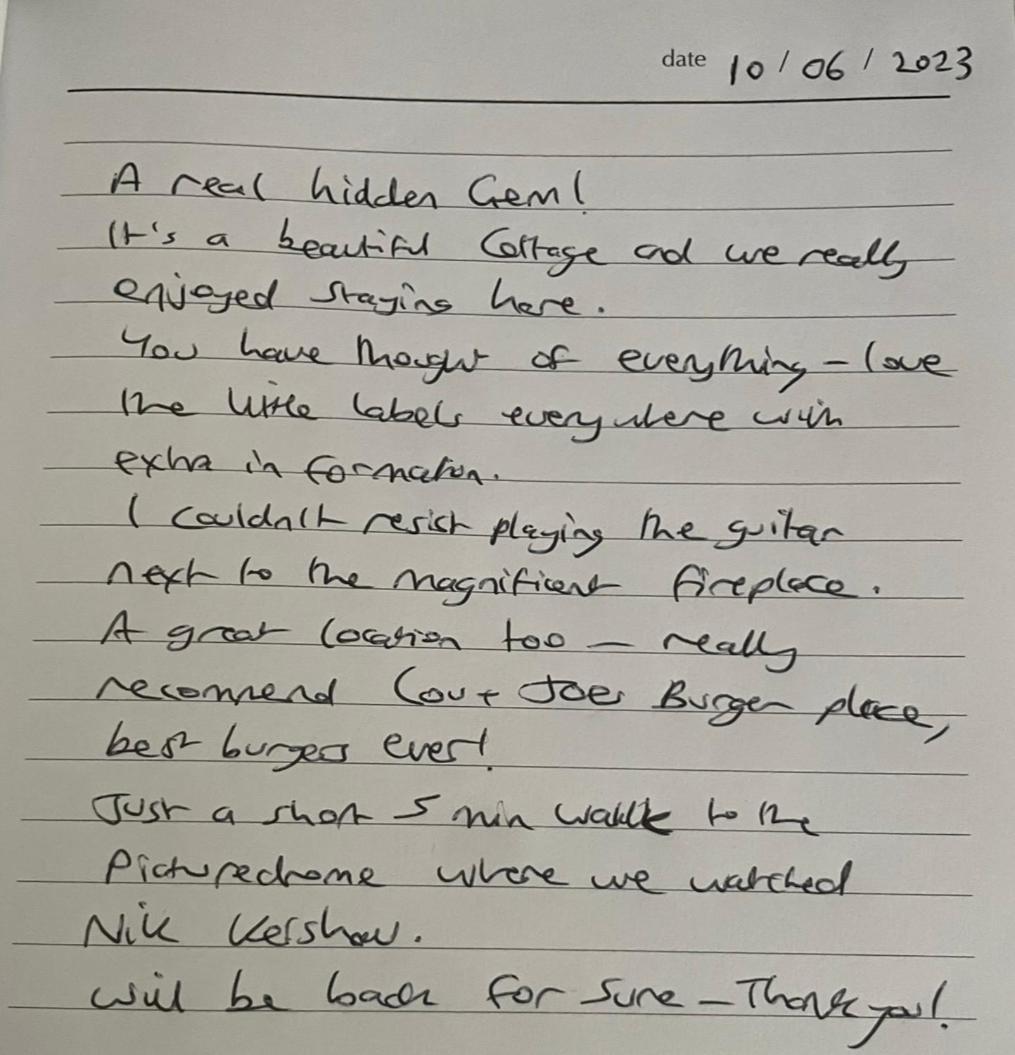 date 10 / 06 / 2023
A real hidden Gem!
It's a beautiful Cottage and we really
enjoyed staying here.
You have thought of everything – love
the little labels everywhere with
extra information.
I couldn't resist playing the guitar
next to the magnificent fireplace.
A great location too – really
recommend Lou + Joes Burger place,
best burgers ever!
Just a short 5 min walk to the
Picturedrome where we watched
Nik Kershaw.
will be back for sure – Thank you!